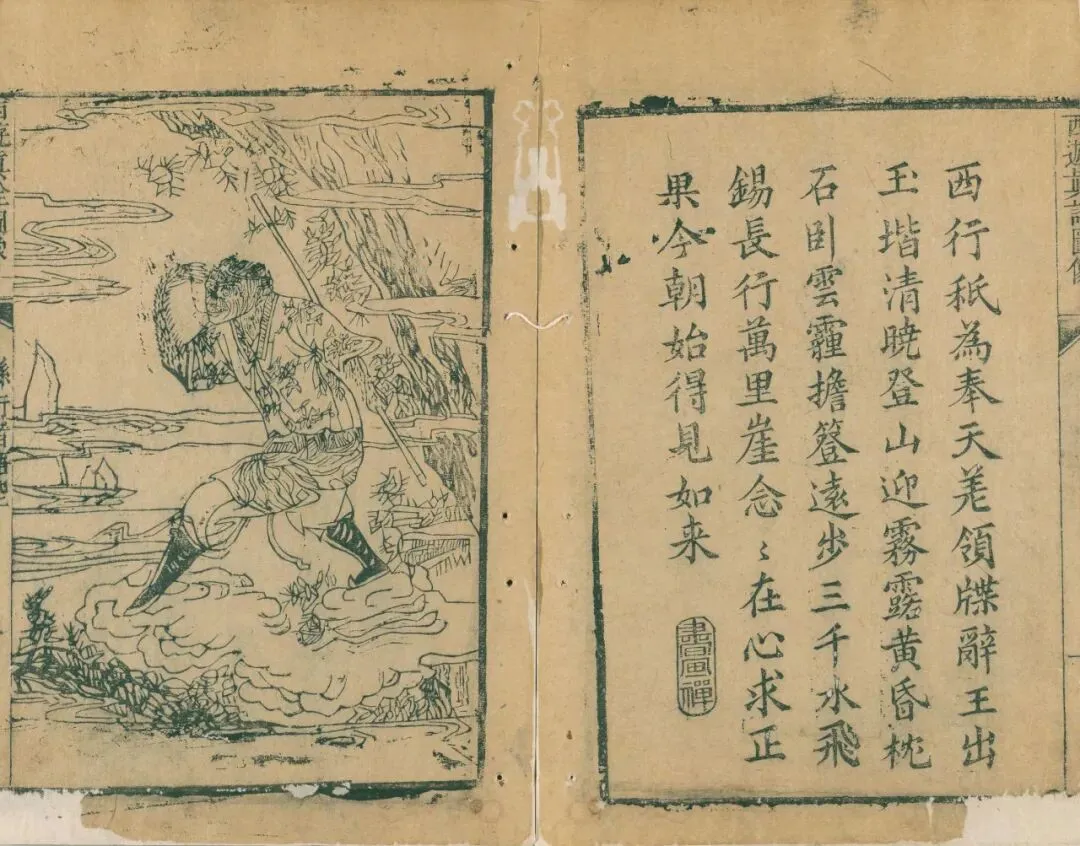 西遊真詮圖像
西行秖為奉天差領牒辭王出
玉堦清曉登山迎霧露黃昏枕
石臥雲霾擔簦遠步三千水飛
錫長行萬里崖念〻在心求正
果今朝始得見如来
書畫禪